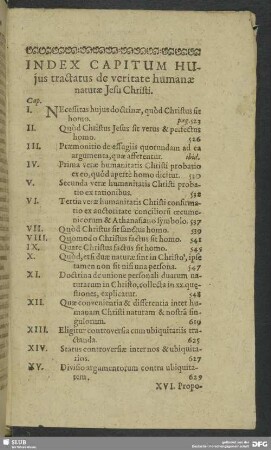 INDEX CAPITUM HU-
jus tractatus de veritate humanæ
naturæ Jesu Christi.
Cap.
I. NEcessitas hujus doctrinæ, quòd Christus sit
homo. pag.523
II. Quòd Christus Jesus sit verus & perfectus
homo. 526
III. Præmonitio de effugiis quorundam ad ea
argumenta, quæ afferentur. ibid.
IV. Prima veræ humanitatis Christi probatio
ex eo, quòd apertè homo dicitur. 520
V. Secunda veræ humanitatis Christi proba-
tio ex rationibus. 528
VI. Tertia veræ humanitatis Christi confirma-
tio ex auctoritate conciliorū œcume-
nicorum & Athanasiano symbolo. 537
VII. Quòd Christus sit sanctus homo. 539
VIII. Quomodo Christus factus sit homo. 541
IX. Quare Christus factus sit homo. 545
X. Quòd, etsi duæ naturæ sint in Christo, ipse
tamen non sit nisi una persona. 547
XI. Doctrina de unione personali duarum na-
turarum in Christo, collecta in xx que-
stiones, explicatur. 548
XII. Quæ convenientia & differentia inter hu-
manam Christi naturam & nostrâ sin-
gulorum. 619
XIII. Eligitur controversia cum ubiquitariis tra-
ctanda. 625
XIV. Status controversiæ inter nos & ubiquita-
rios. 627
XV. Divisio argumentorum contra ubiquita-
tem. 629
XVI. Propo-
SLUB
DFG